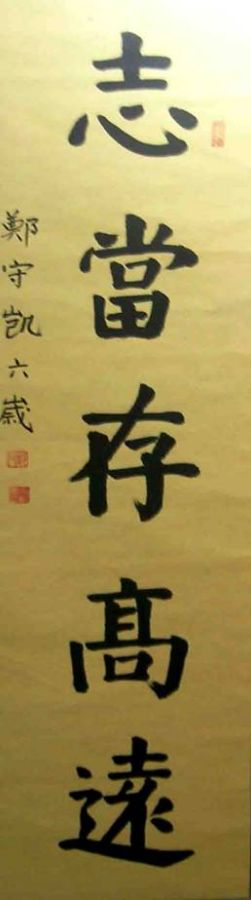 志當存髙遠
鄭守凯六歲